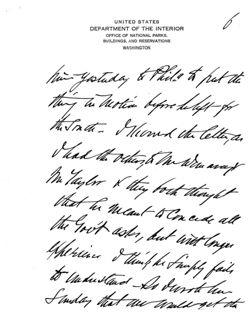 6
UNITED STATES
DEPARTMENT OF THE INTERIOR
OFFICE OF NATIONAL PARKS,
BUILDINGS, AND RESERVATIONS
WASHINGTON
him yesterday to Phila to put the
thing in motion before he left for
the South - I showed the letter, as
I had the others to Mr
Mr Taylor & they both thought
that he meant to concede all
the Gov't asks, but with longer
experience I think he simply fails
to understand - So I wrote him
Sunday that we would get the